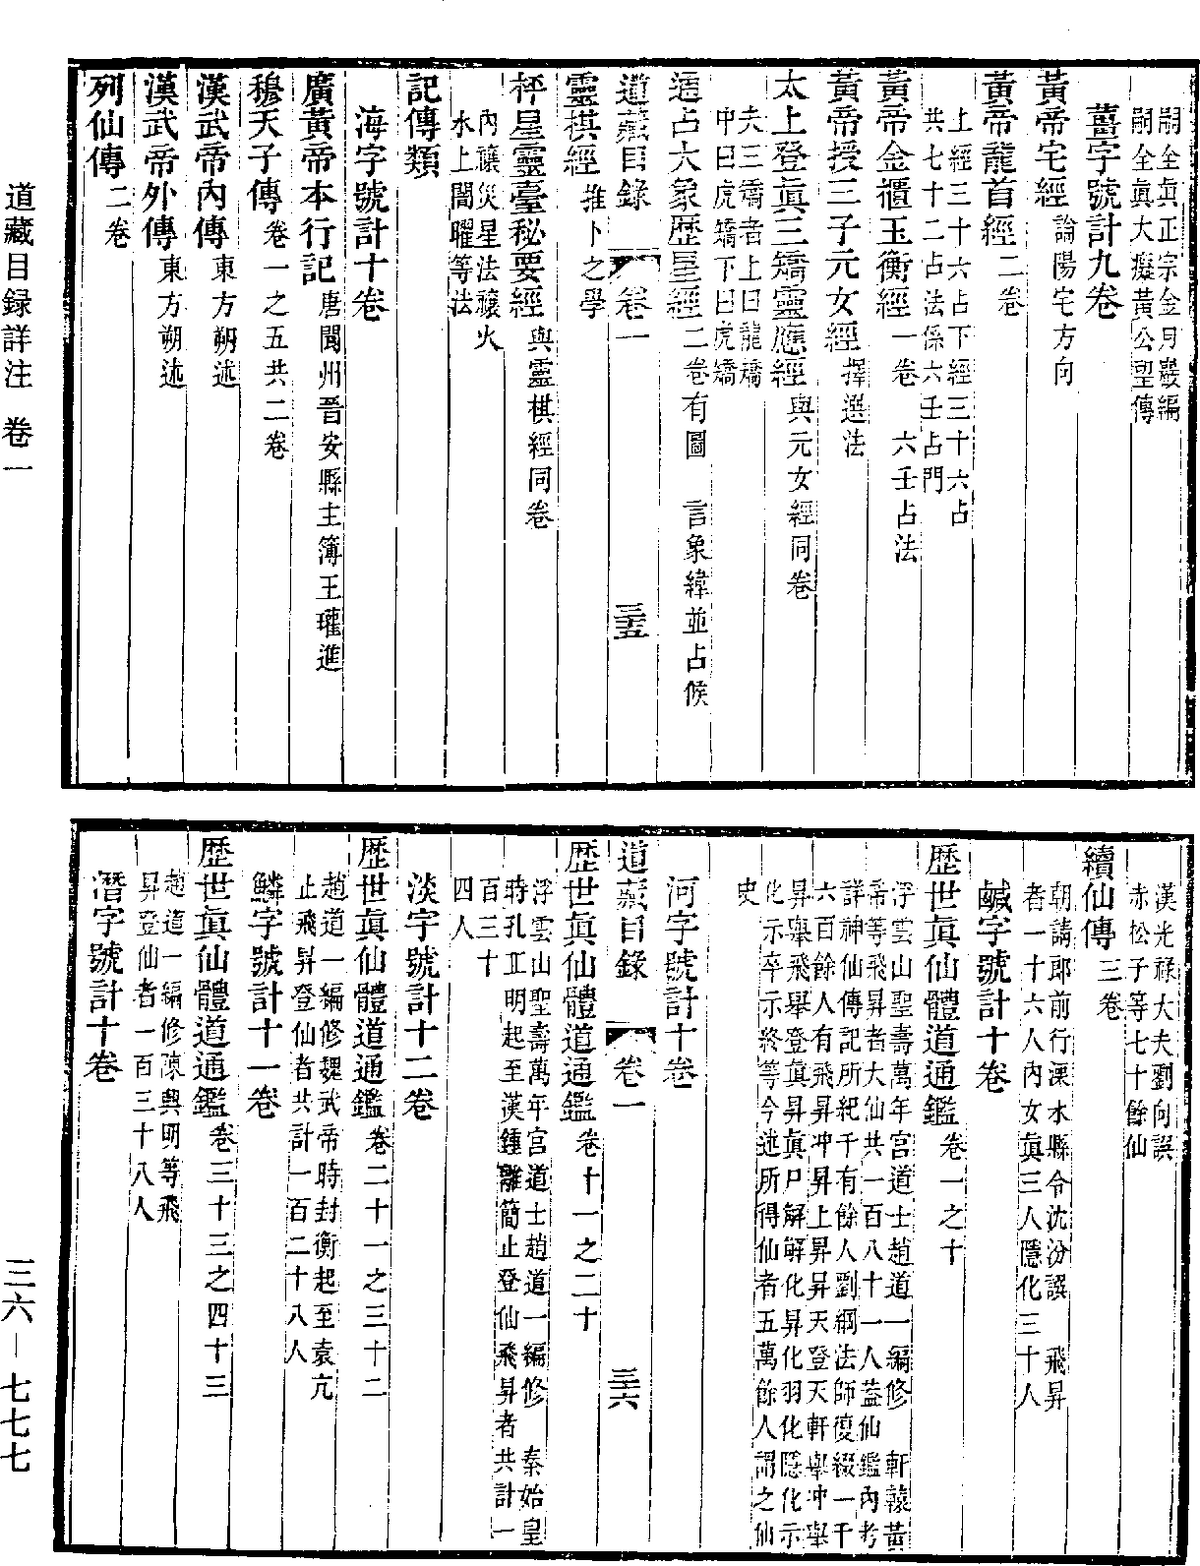 嗣全眞正宗金月巖編
嗣全眞大癡黃公望傳
薑字號計九卷
黃帝宅經 論陽宅方向
黃帝龍首經 二卷
上經三十六占下經三十六占
共七十二占法係六壬占門
黃帝金櫃玉衡經 一卷 六壬占法
黃帝授三子元女經 擇選法
太上登眞三矯靈應經 與元女經同卷
夫三矯者上曰龍矯
中曰虎矯下曰虎矯
通占大象歴星經 二卷有圖 言象緯並占候
道藏目錄 卷一 三五
靈棋經 推卜之學
枰星靈臺秘要經 與靈棋經同卷
內禳災星法禳火
水上闇曜等法
記傳類
海字號計十卷
廣黃帝本行記 唐閬州晉安縣主簿王瓘進
穆天子傳 卷一之五共二卷
漢武帝內傳 東方朔述
漢武帝外傳 東方朔述
列仙傳 二卷
漢光祿大夫劉向譔
赤松子等七十餘仙
續仙傳 三卷
朝請郎前行溧水縣令沈汾譔 飛昇
者一十六人內女眞三人隱化三十人
鹹字號計十卷
歴世眞仙體道通鑑 卷一之十
浮雲山聖壽萬年宮道士趙道一編修 軒轅黃
帝等飛昇者大仙共一百八十一人葢仙鑑內考
詳神仙傳記所紀千有餘人劉綱法師復綴一千
六百餘人有飛昇冲昇上昇昇天登天軒舉冲舉
昇舉飛舉登眞昇眞尸解解化昇化羽化隱化示
化示卒示終等今述所得仙者五萬餘人謂之仙
史
河字號計十卷
道藏目錄 卷一 三六
歴世眞仙體道通鑑 卷十一之二十
浮雲山聖壽萬年宮道士趙道一編修 秦始皇
時孔丘明起至漢鍾離簡止登仙飛昇者共計一
百三十
四人
淡字號計十二卷
歴世眞仙體道通鑑 卷二十一之三十二
趙道一編修魏武帝時封衡起至袁亢
止飛昇登仙者共計一百二十八人
鱗字號計十一卷
歴世眞仙體道通鑑 卷三十三之四十三
趙道一編修陳興明等飛
昇登仙者一百三十八人
潛字號計十卷
道藏目録詳注 卷一
三六—七七七